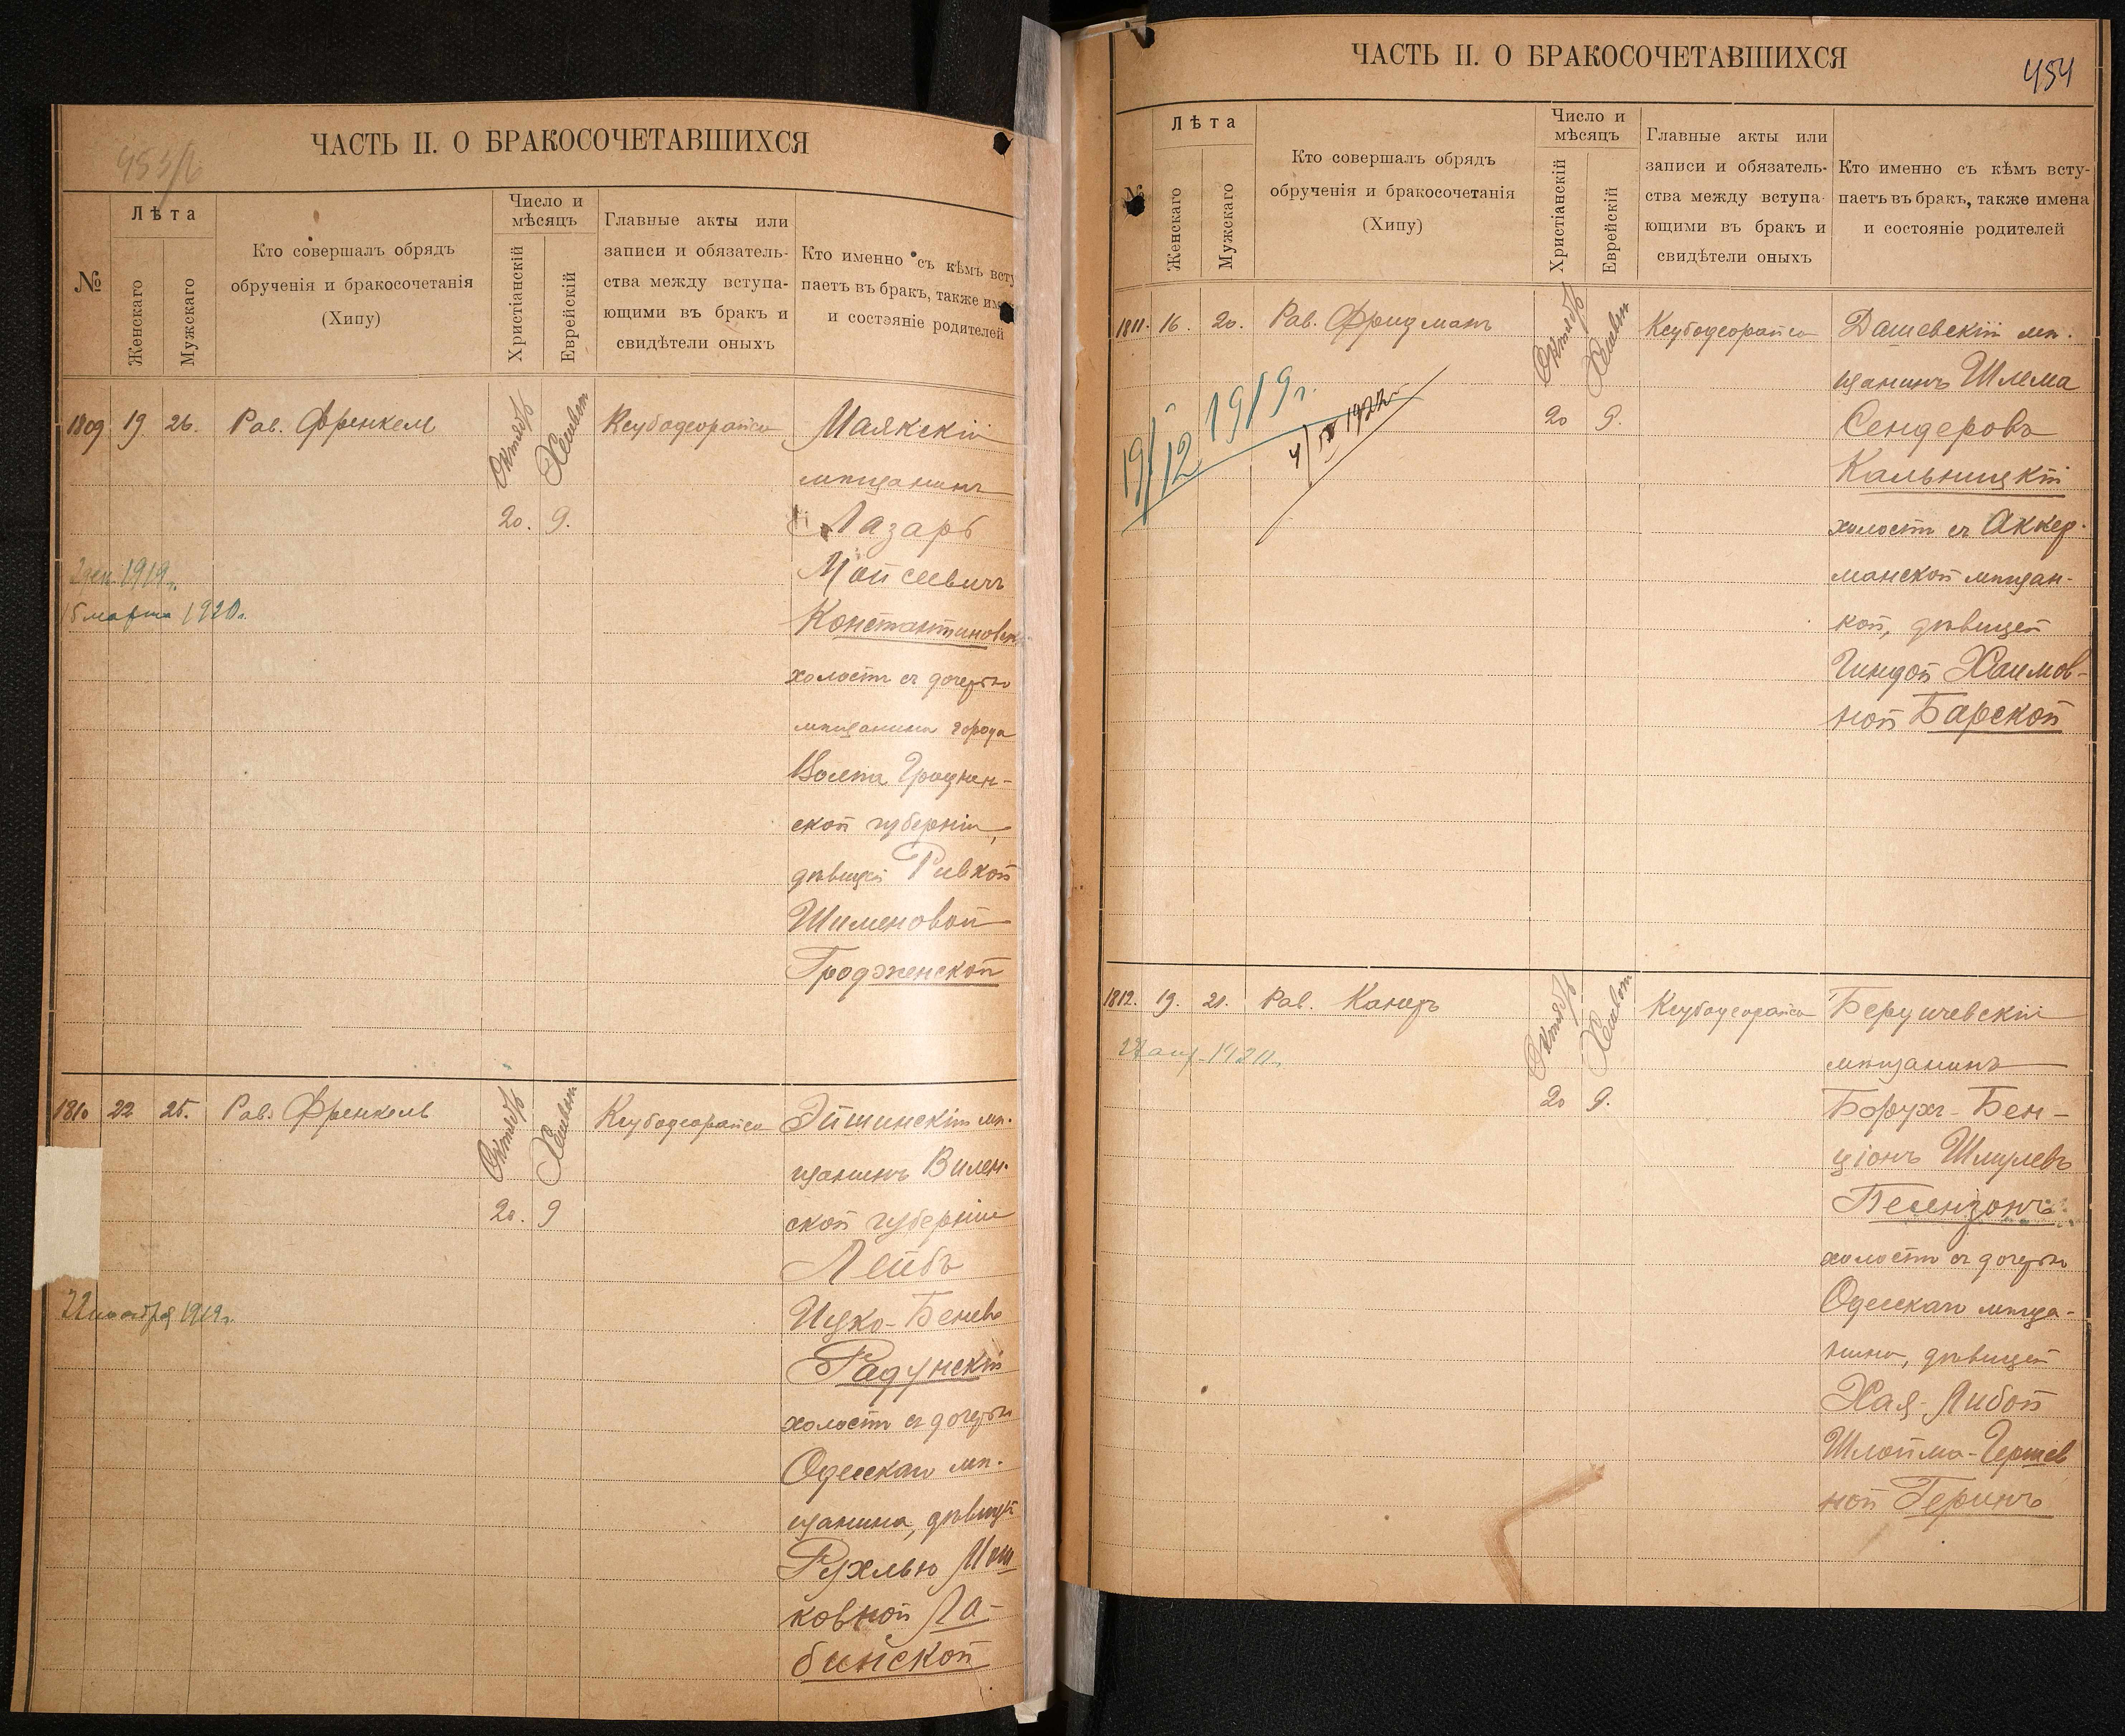 453/б
ЧАСТЬ II. О БРАКОСОЧЕТАВШИХСЯ
№
Лѣта
Женскаго
Мужскаго
Кто совершалъ обрядъ
обрученія и бракосочетанія
(Хипу)
Число и
мѣсяцъ
Христіанскій
Еврейскій
Главные акты или
записи и обязатель-
ства между вступа-
ющими въ бракъ и
свидѣтели оныхъ
Кто именно съ кѣмъ всту
паетъ въ бракъ, также им
и состояніе родителей
1809 19 26. Рав. Френкель
Октябрь Хешвон
20. 9.
Ксубодеорайсо
Маякскій
мѣщанинъ
Лазарь
Мойсеевичъ
Константиновск
холостъ съ дочерью
мѣщанина города
Гроднен-
ской губерніи,
дѣвицей Ривкой
Шименовой
Гродженской
1919г.
15 марта 1920г.
1810 22 25. Рав. Френкель
Октябрь Хешвон
20. 9
Ксубодеорайсо
Эйшинскій мѣ-
щанинъ Вилен-
ской губерніи
Лейбъ
Ицко-Беневъ
Радунскій
холостъ съ дочерью
Одесскаго мѣ-
щанина, дѣвицей
Рухлью Мош
ковной Ла-
бинской
22 ноября 1919г.
454
ЧАСТЬ II. О БРАКОСОЧЕТАВШИХСЯ
№
Лѣта
Женскаго
Мужскаго
Кто совершалъ обрядъ
обрученія и бракосочетанія
(Хипу)
Число и
мѣсяцъ
Христіанскій
Еврейскій
Главные акты или
записи и обязатель-
ства между вступа-
ющими въ бракъ и
свидѣтели оныхъ
Кто именно съ кѣмъ всту-
паетъ въ бракъ, также имена
и состояніе родителей
1811. 16. 20. Рав. Фридманъ
Октябрь Хешвон
20 9.
Ксубодеорайсо
Дашевскій мѣ-
щанинъ Шлема
Сендеровъ
Кальницкій
холостъ съ Аккер-
манской мѣщан-
кой, дѣвицей
Гиндой Хаимов-
ной Барской
19/12 1919г.
4/IV 1922г.
1812. 19. 21. Рав. Канеръ
Октябрь Хешвон
20 9.
Ксубодеорайсо
Бердичевскій
мѣщанинъ
Борухъ-Бен-
ціонъ Шмулевъ
Бесензонъ
холостъ съ дочерью
Одесскаго мѣща-
нина, дѣвицей
Хая-Либой
Шлойма-Гершев
ной Геринъ